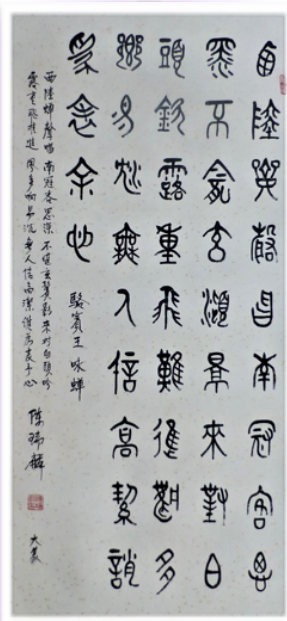 西陸蟬聲唱南冠客思
深不堪玄鬢景來對白
頭吟露重飛難進風多
響易沈無人信高潔誰
為表余心
駱賓王 咏蟬
西陸蟬聲唱 南冠客思深 不堪玄鬢影 來對白頭吟
露重飛難進 風多響易沉 無人信高潔 誰為表予心
陳瑞麟
大篆